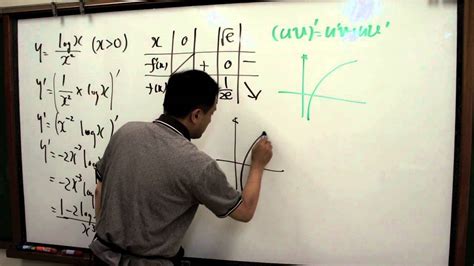 y = log x / x² (x>0)
y' = (1/x² × log x)'
y' = (x⁻² log x)'
y' = -2x⁻³ log
= -2x⁻³ log
= 1-2log / x³
x 0 √e
f'(x) + 0 −
f(x) 1/2e ↘
(uv)' = u'v+uv'